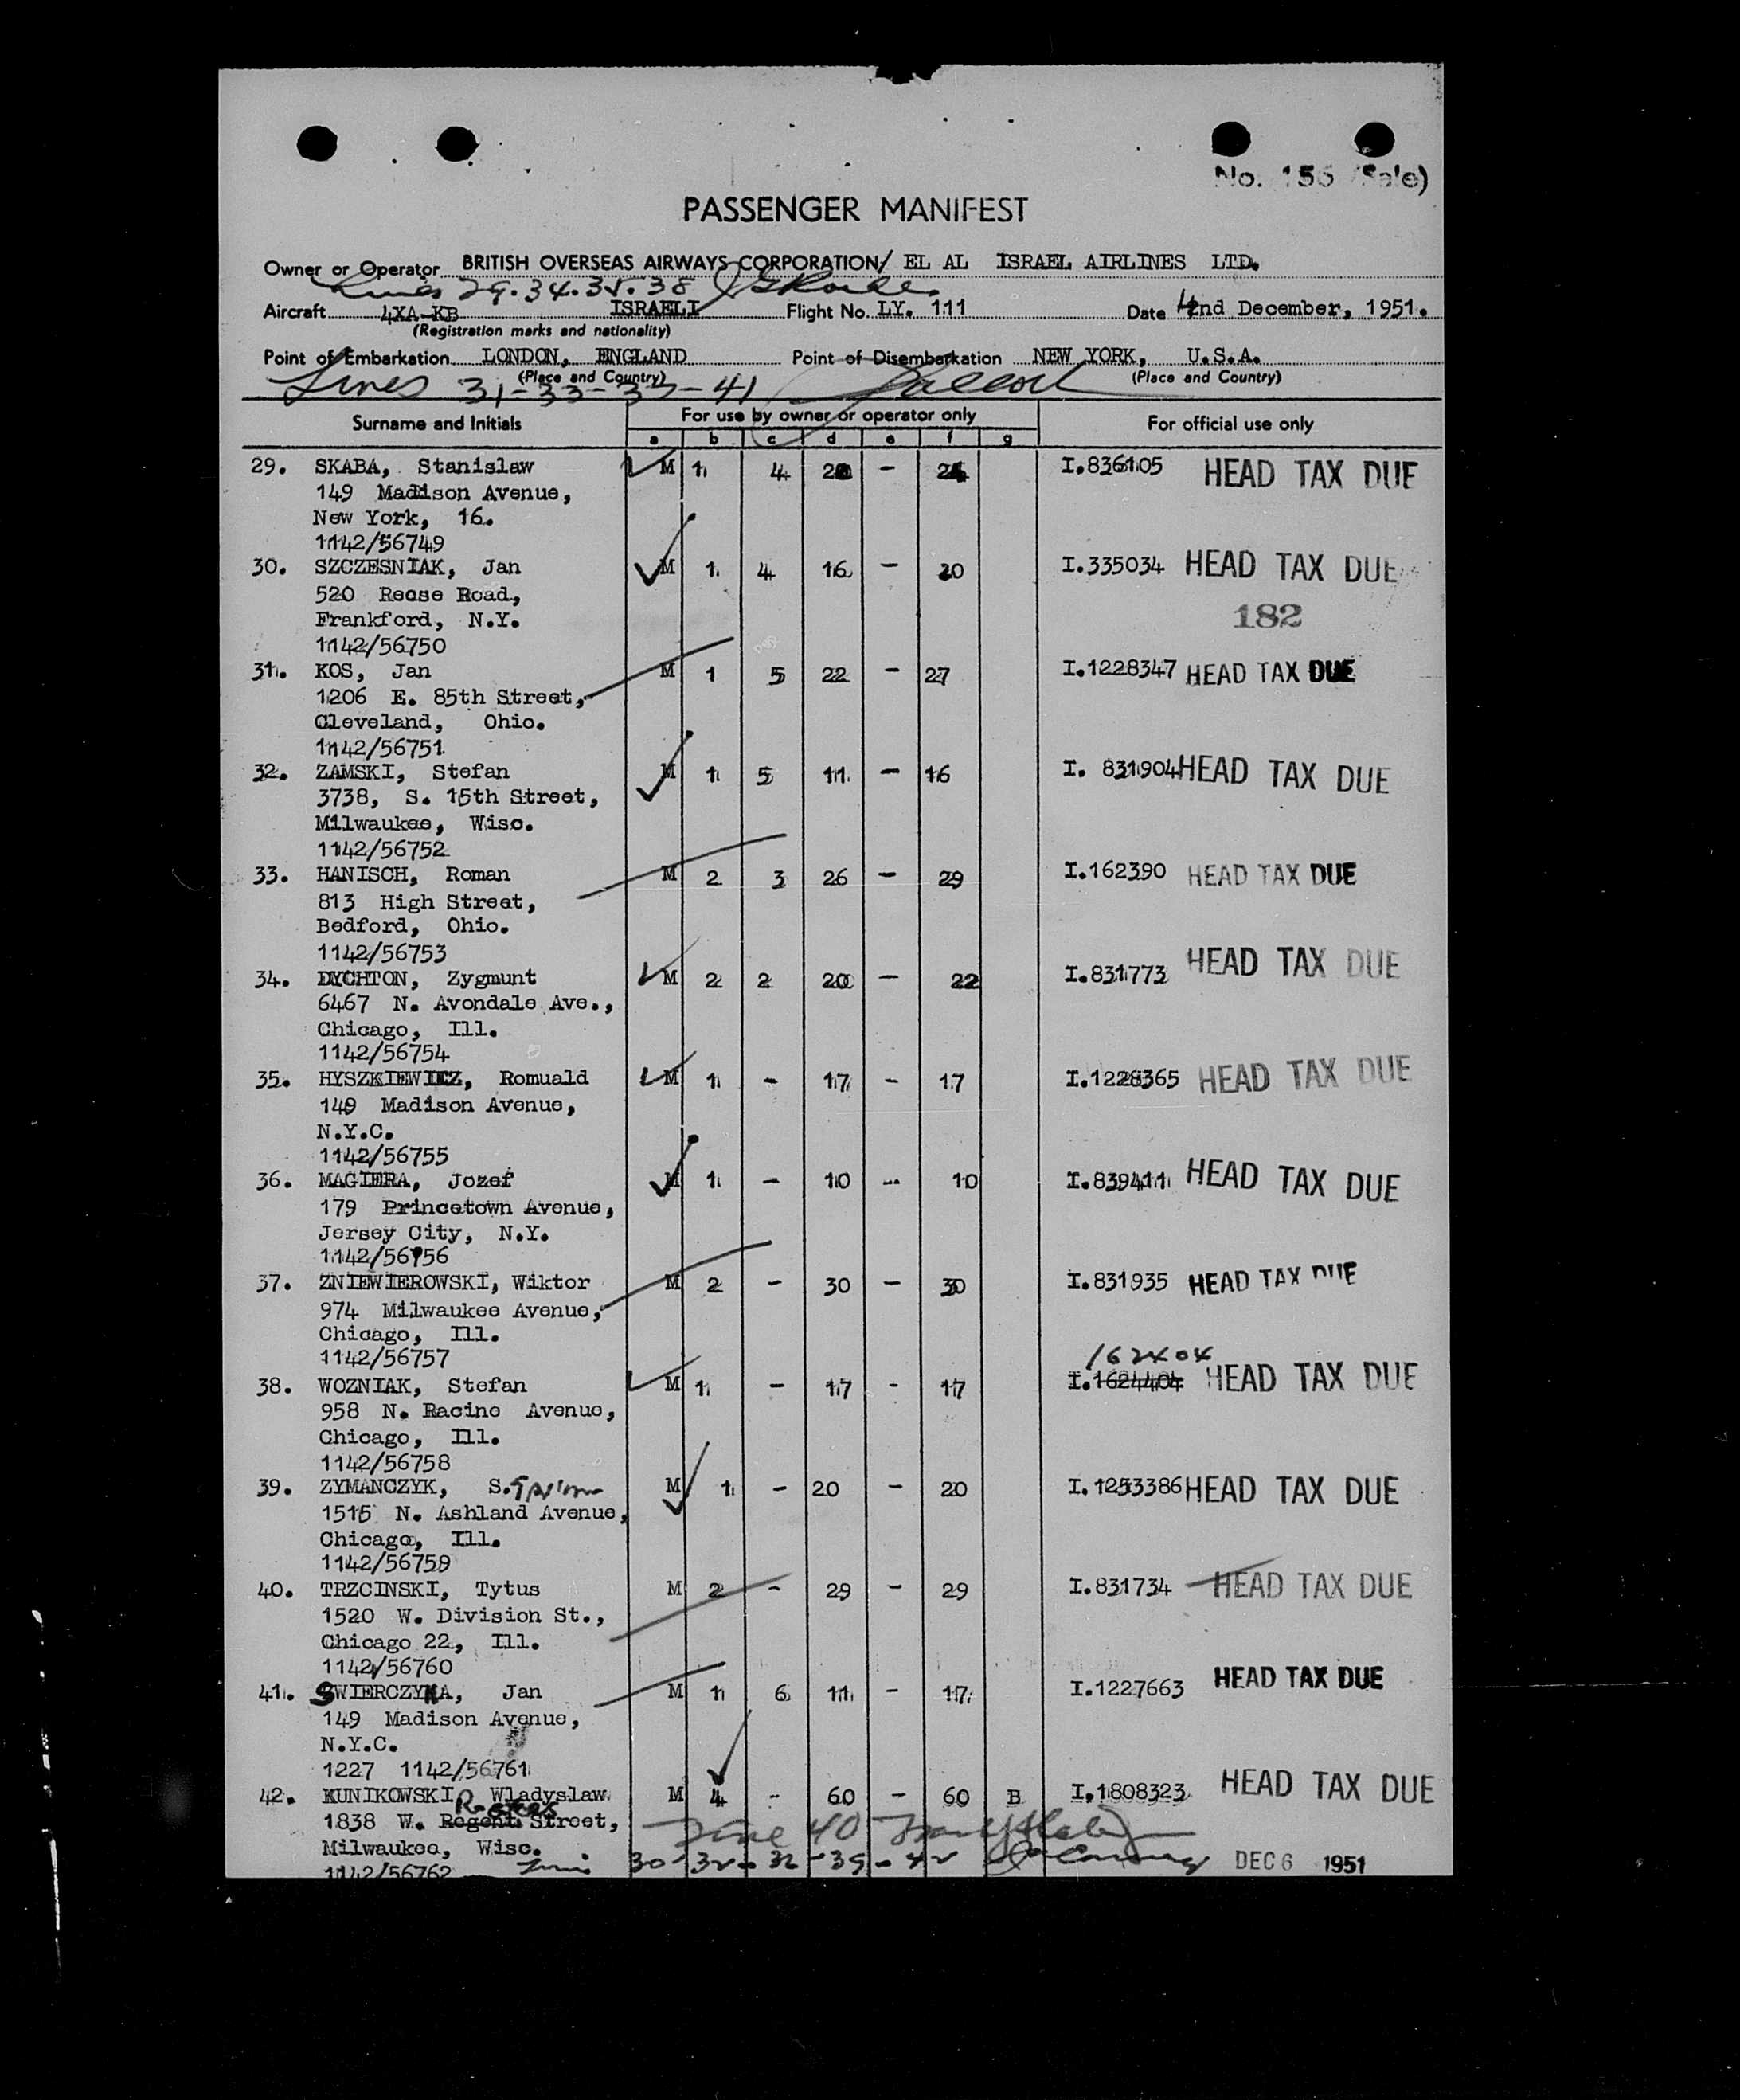 No. 156 (Sale)
PASSENGER MANIFEST
Owner or Operator BRITISH OVERSEAS AIRWAYS CORPORATION/ EL AL ISRAEL AIRLINES LTD.
Lines 29.34.35.38
Aircraft 4XA-KB ISRAELI Flight No. LY. 111 Date 4nd December, 1951.
(Registration marks and nationality)
Point of Embarkation LONDON, ENGLAND Point of Disembarkation NEW YORK, U.S.A.
(Place and Country) (Place and Country)
Lines 31-33-37-41
Surname and Initials For use by owner or operator only For official use only
a b c d e f g
29. SKABA, Stanislaw M 1 4 20 - 24 I.836105 HEAD TAX DUE
149 Madison Avenue,
New York, 16.
1142/56749
30. SZCZESNIAK, Jan M 1 4 16 - 20 I.335034 HEAD TAX DUE
520 Reese Road, 182
Frankford, N.Y.
1142/56750
31. KOS, Jan M 1 5 22 - 27 I.1228347 HEAD TAX DUE
1206 E. 85th Street,
Cleveland, Ohio.
1142/56751
32. ZAMSKI, Stefan M 1 5 11 - 16 I. 831904 HEAD TAX DUE
3738, S. 15th Street,
Milwaukee, Wisc.
1142/56752
33. HANISCH, Roman M 2 3 26 - 29 I.162390 HEAD TAX DUE
813 High Street,
Bedford, Ohio.
1142/56753
34. DYCHTON, Zygmunt M 2 2 20 - 22 I.831773 HEAD TAX DUE
6467 N. Avondale Ave.,
Chicago, Ill.
1142/56754
35. HYSZKIEWICZ, Romuald M 1 - 17 - 17 I.1228365 HEAD TAX DUE
149 Madison Avenue,
N.Y.C.
1142/56755
36. MAGIERA, Jozef M 1 - 10 - 10 I.839411 HEAD TAX DUE
179 Princetown Avenue,
Jersey City, N.Y.
1142/56756
37. ZNIEWIEROWSKI, Wiktor M 2 - 30 - 30 I.831935 HEAD TAX DUE
974 Milwaukee Avenue,
Chicago, Ill.
1142/56757
162404
38. WOZNIAK, Stefan M 1 - 17 - 17 I.1624404 HEAD TAX DUE
958 N. Racine Avenue,
Chicago, Ill.
1142/56758
39. ZYMANCZYK, S. M 1 - 20 - 20 I.1253386 HEAD TAX DUE
1515 N. Ashland Avenue,
Chicago, Ill.
1142/56759
40. TRZCINSKI, Tytus M 2 - 29 - 29 I.831734 HEAD TAX DUE
1520 W. Division St.,
Chicago 22, Ill.
1142/56760
41. SWIERCZYNA, Jan M 1 6 11 - 17 I.1227663 HEAD TAX DUE
149 Madison Avenue,
N.Y.C.
1227 1142/56761
42. KUNIKOWSKI, Wladyslaw M 4 - 60 - 60 B I.1808323 HEAD TAX DUE
1838 W. Rogers Street,
Line 40
Milwaukee, Wisc.
1142/56762 Lines 30-32-36-39-42 DEC 6 1951